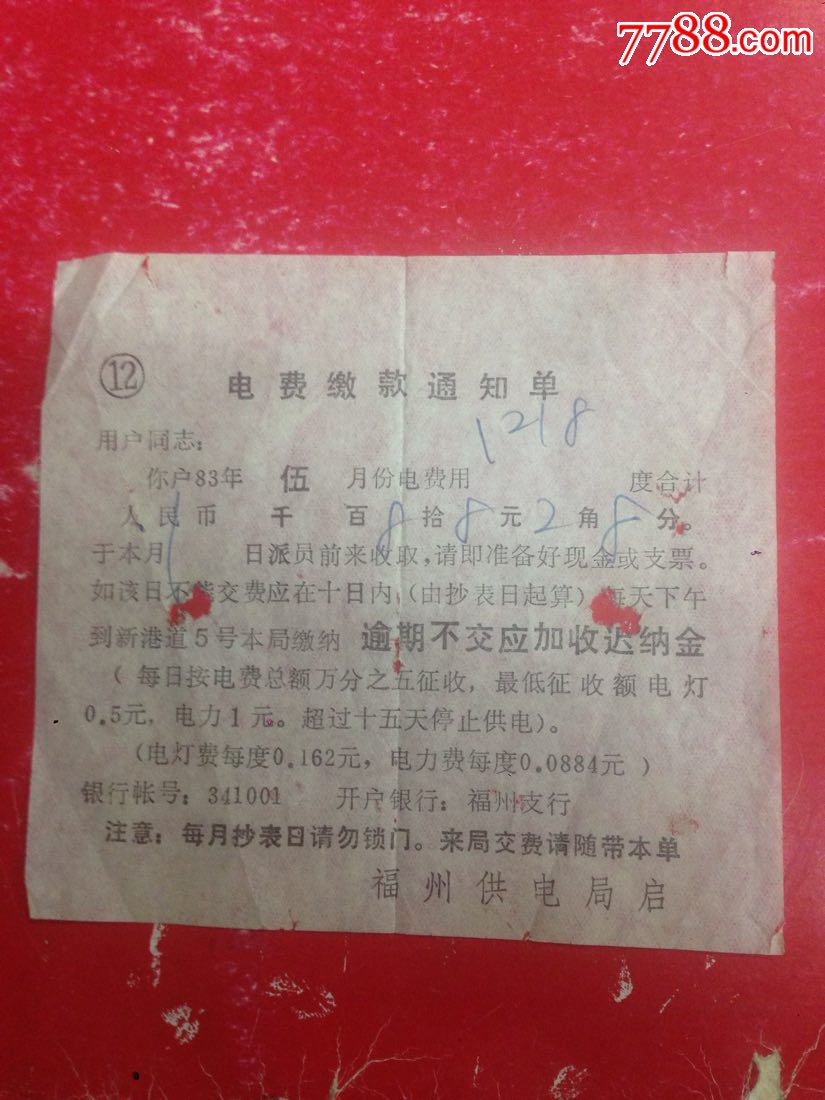 7788.com
⑫ 电费缴款通知单
用户同志:
1218
你户83年 伍 月份电费用 度合计
人民币 千 百 8 拾 8 元 2 角 8 分。
于本月 1 日派员前来收取,请即准备好现金或支票。
如该日不能交费应在十日内(由抄表日起算)每天下午
到新港道5号本局缴纳 逾期不交应加收迟纳金
(每日按电费总额万分之五征收,最低征收额电灯
0.5元,电力1元。超过十五天停止供电)。
(电灯费每度0.162元,电力费每度0.0884元)
银行帐号:341001 开户银行:福州支行
注意:每月抄表日请勿锁门。来局交费请随带本单
福州供电局启